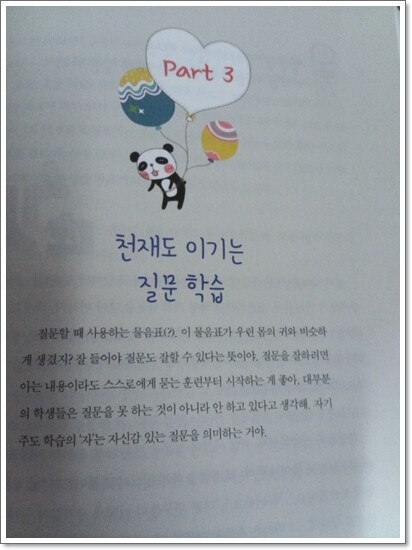 Part 3
천재도 이기는
질문 학습
질문할 때 사용하는 물음표(?). 이 물음표가 우린 몸의 귀와 비슷하
게 생겼지? 잘 들어야 질문도 잘할 수 있다는 뜻이야. 질문을 잘하려면
아는 내용이라도 스스로에게 묻는 훈련부터 시작하는 게 좋아. 대부분
의 학생들은 질문을 못 하는 것이 아니라 안 하고 있다고 생각해. 자기
주도 학습의 '자'는 자신감 있는 질문을 의미하는 거야.